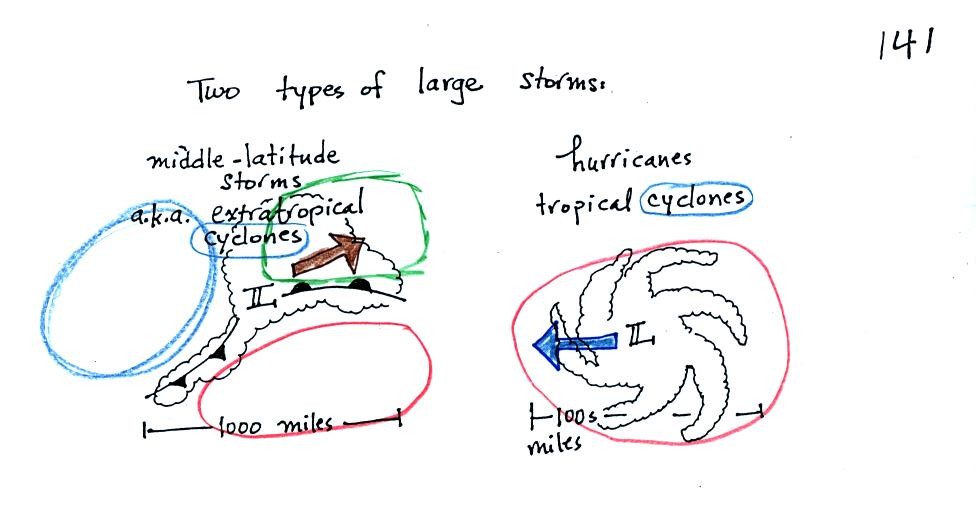 141
Two types of large storms:
middle-latitude
storms
a.k.a. extratropical
cyclones
L
1000 miles
hurricanes
tropical cyclones
L
100s
miles